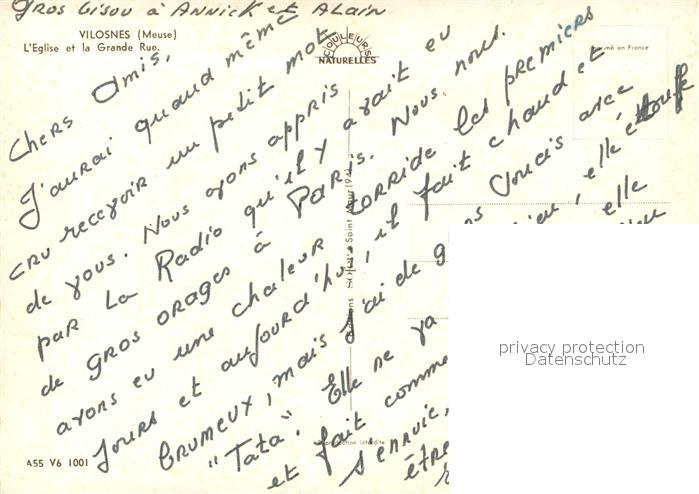 GROS bisou à ANNICK et ALAIN
VILOSNES (Meuse)
L'Eglise et la Grande Rue.
COULEURS
NATURELLES
en France
Chers Amis,
J'aurai quand même
cru recevoir un petit mot
de vous. Nous avons appris
par la Radio qu'il y avait eu
de gros orages à Paris. Nous, nous
avons eu une chaleur torride les premiers
jours et aujourd'hui, il fait chaud et
brumeux, mais j'ai de g s soucis avec
"Tata". Elle ne va elle étouffe
et fait comme elle
s'ennuie,
être
Reproduction interdite
A55 V6 1001
privacy protection
Datenschutz